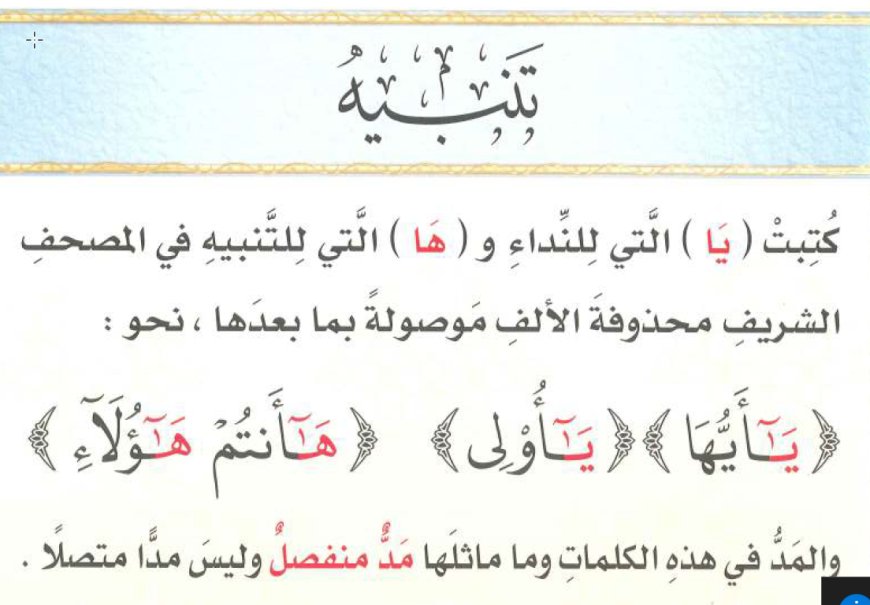 تَنْبِيهٌ
كُتِبتْ ( يَا ) الَّتي لِلنِّداءِ و ( هَا ) الَّتي لِلتَّنبيهِ في المصحفِ
الشريفِ محذوفةَ الألفِ مَوصولةً بما بعدَها ، نحو :
﴿ يَـٰٓأَيُّهَا ﴾ ﴿ يَـٰٓأُوْلِى ﴾ ﴿ هَـٰٓأَنتُمْ هَـٰٓؤُلَآءِ ﴾
والمَدُّ في هذهِ الكلماتِ وما ماثلَها مَدٌّ منفصلٌ وليسَ مدًّا متصلًا .